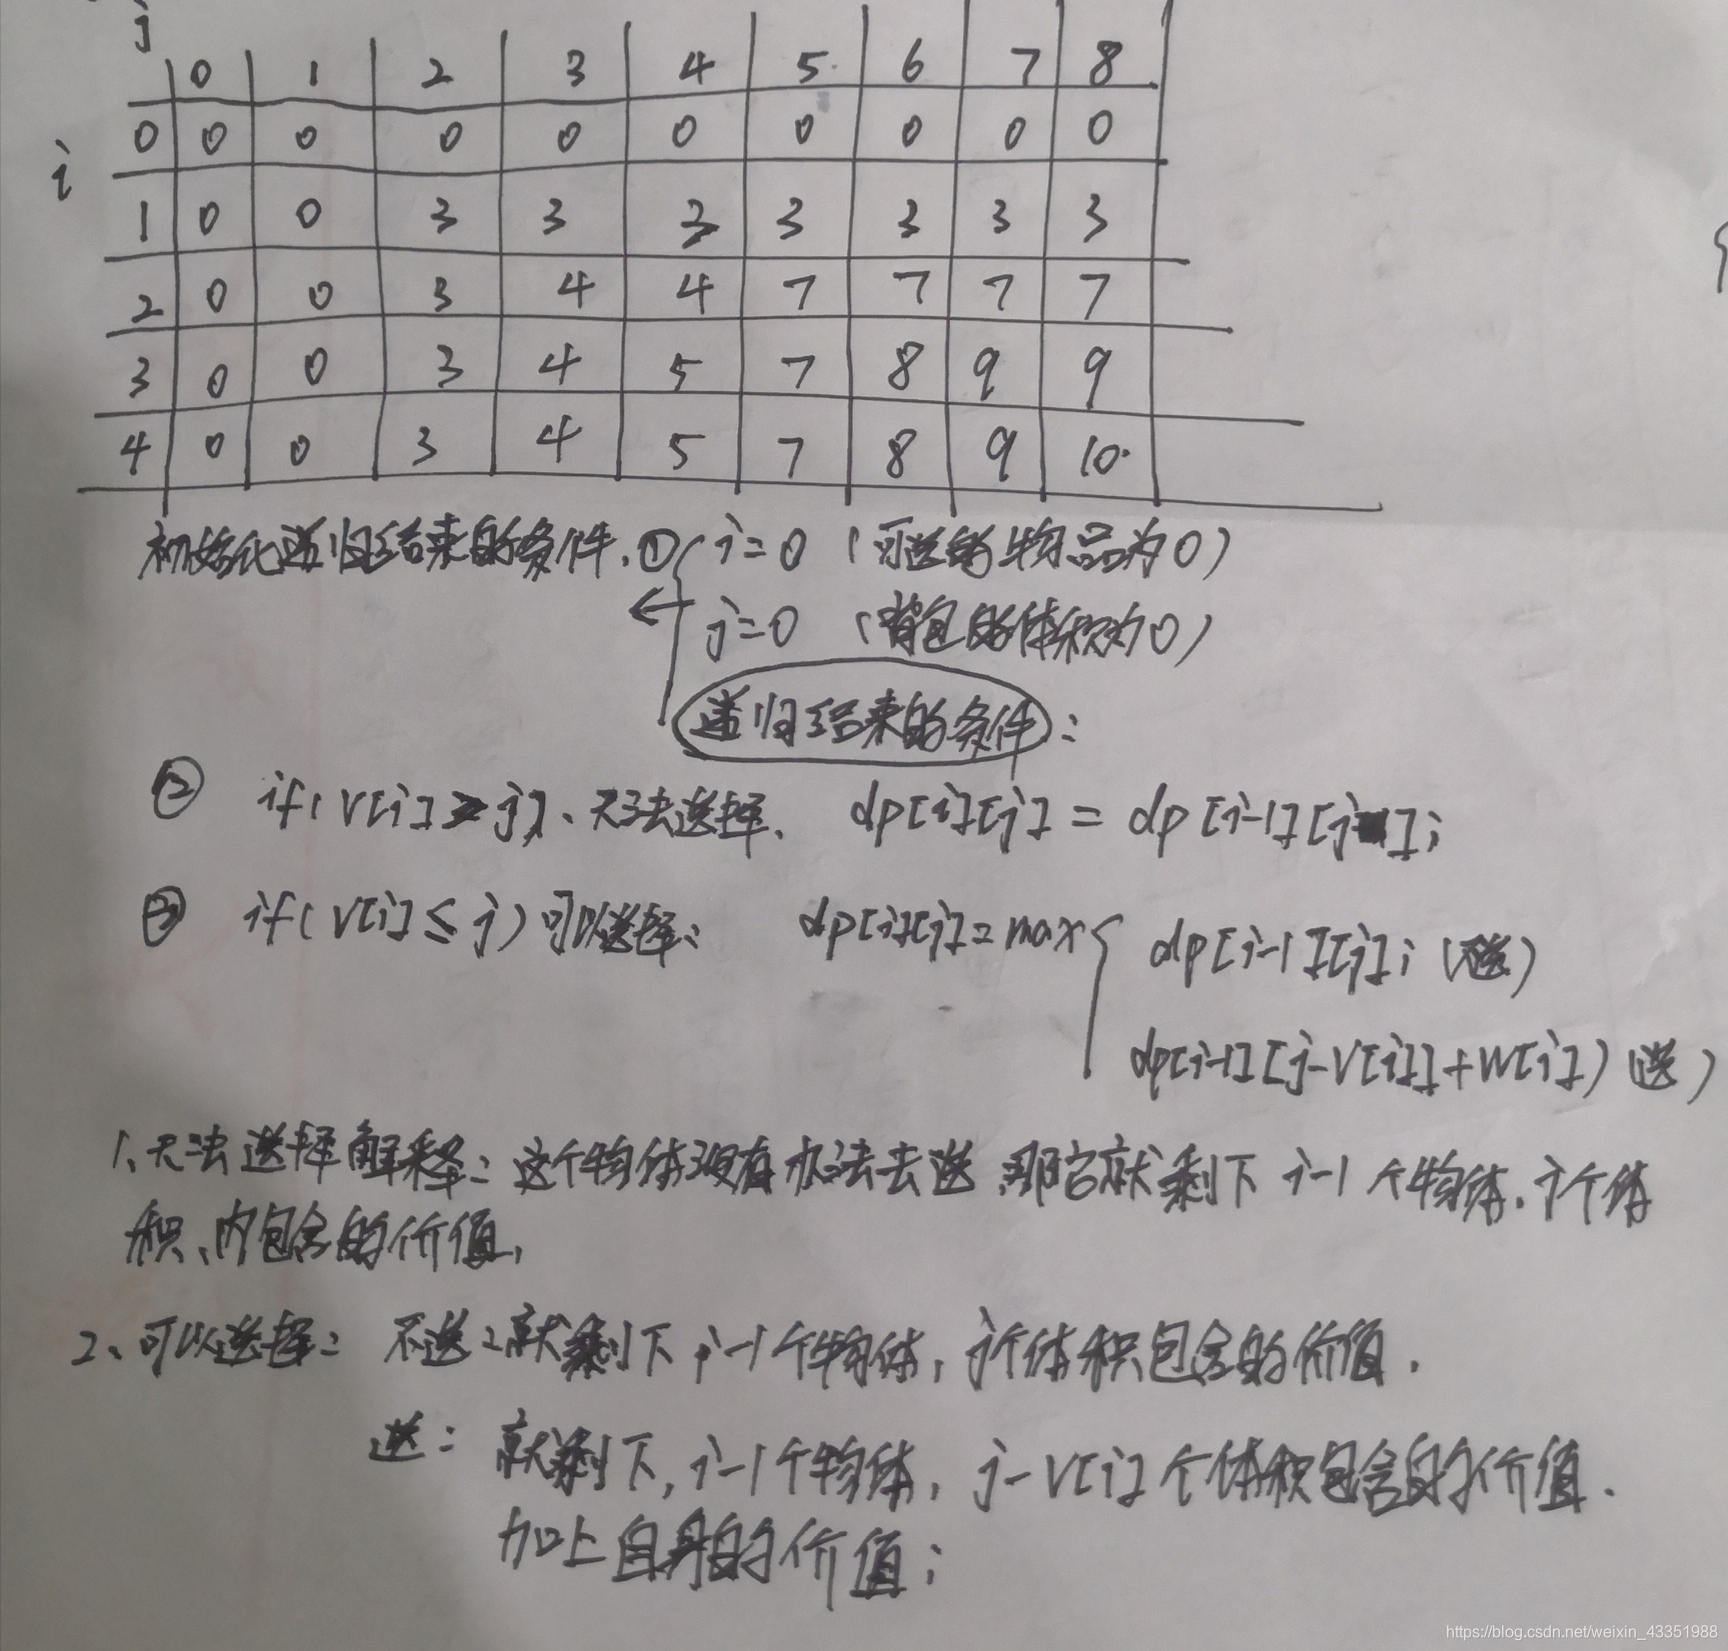 j
0 1 2 3 4 5 6 7 8
0 0 0 0 0 0 0 0 0 0
i
1 0 0 3 3 3 3 3 3 3
2 0 0 3 4 4 7 7 7 7
3 0 0 3 4 5 7 8 9 9
4 0 0 3 4 5 7 8 9 10
初始化递归结束的条件. ① i=0 (可选的物品为0)
← j=0 (背包的体积为0)
递归结束的条件:
② if(V[i]>j)、无法选择、 dp[i][j] = dp[i-1][j];
③ if(V[i]≤j)可以选择: dp[i][j]=max{ dp[i-1][j]; (不选)
dp[i-1][j-V[i]]+W[i]) (选)
1、无法选择解释: 这个物体没有办法去选 那它就剩下 i-1 个物体. j个体
积、内包含的价值,
2、可以选择: 不选:就剩下 i-1个物体, j个体积包含的价值.
选: 就剩下, i-1个物体, j-V[i]个体积包含的价值.
加上自身的价值;
https://blog.csdn.net/weixin_43351988